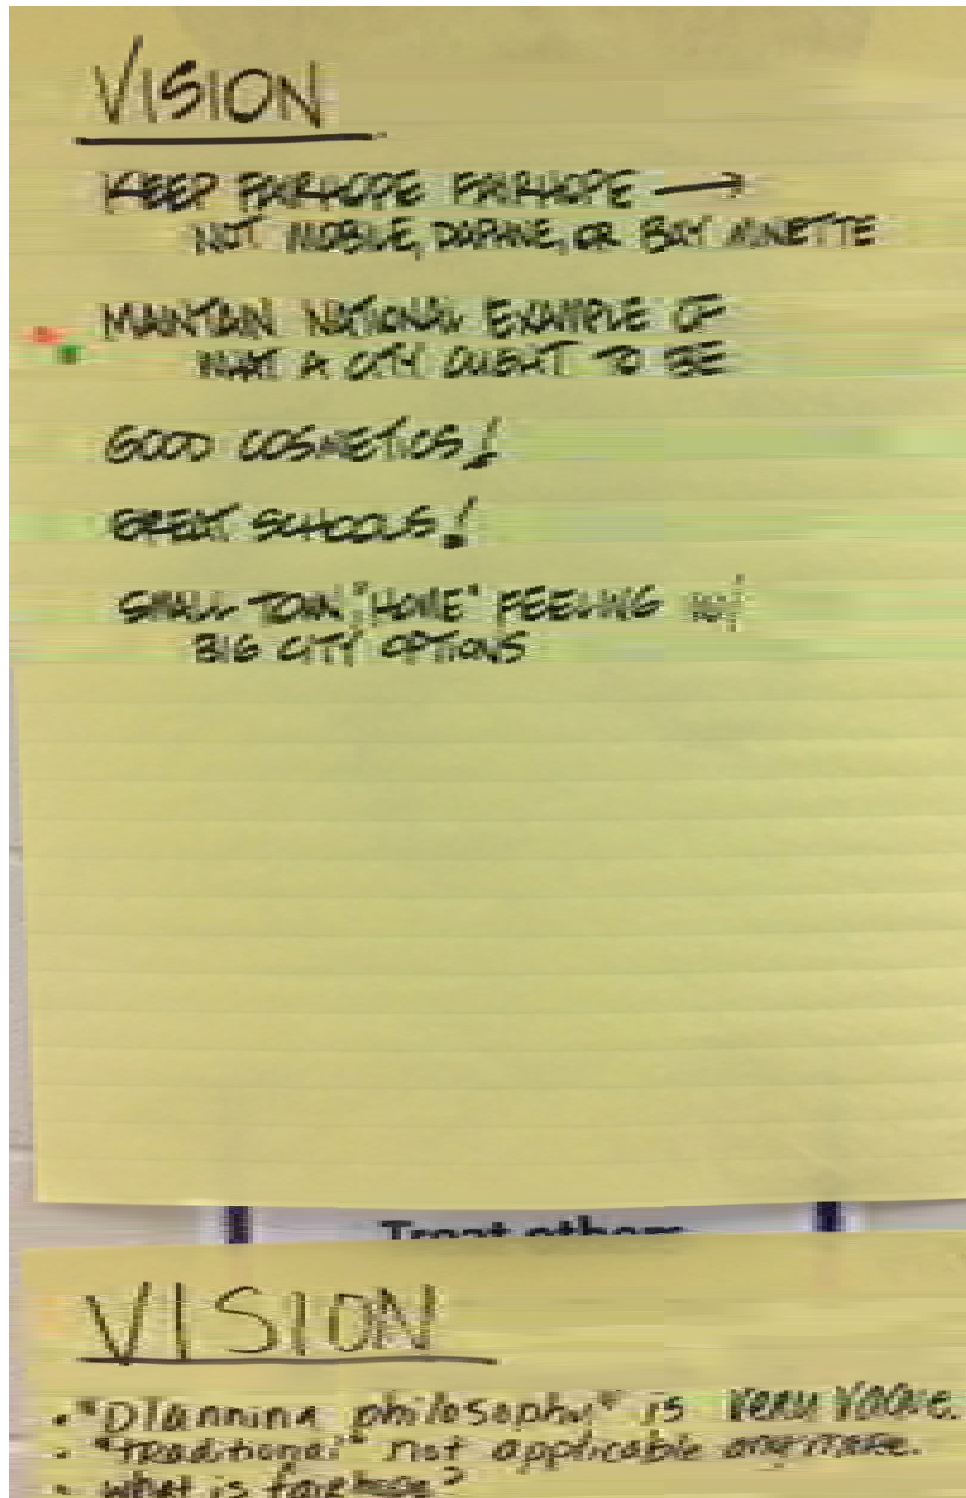 VISION
KEEP FAIRHOPE FAIRHOPE →
NOT MOBILE, DAPHNE, OR BAY MINETTE
MAINTAIN NATIONAL EXAMPLE OF
WHAT A CITY OUGHT TO BE
GOOD COSMETICS!
GREAT SCHOOLS!
SMALL TOWN "HOME" FEELING w/
BIG CITY OPTIONS
Treat others
VISION
• "Planning philosophy" is VERY VAGUE.
• "traditional" not applicable anymore.
• what is